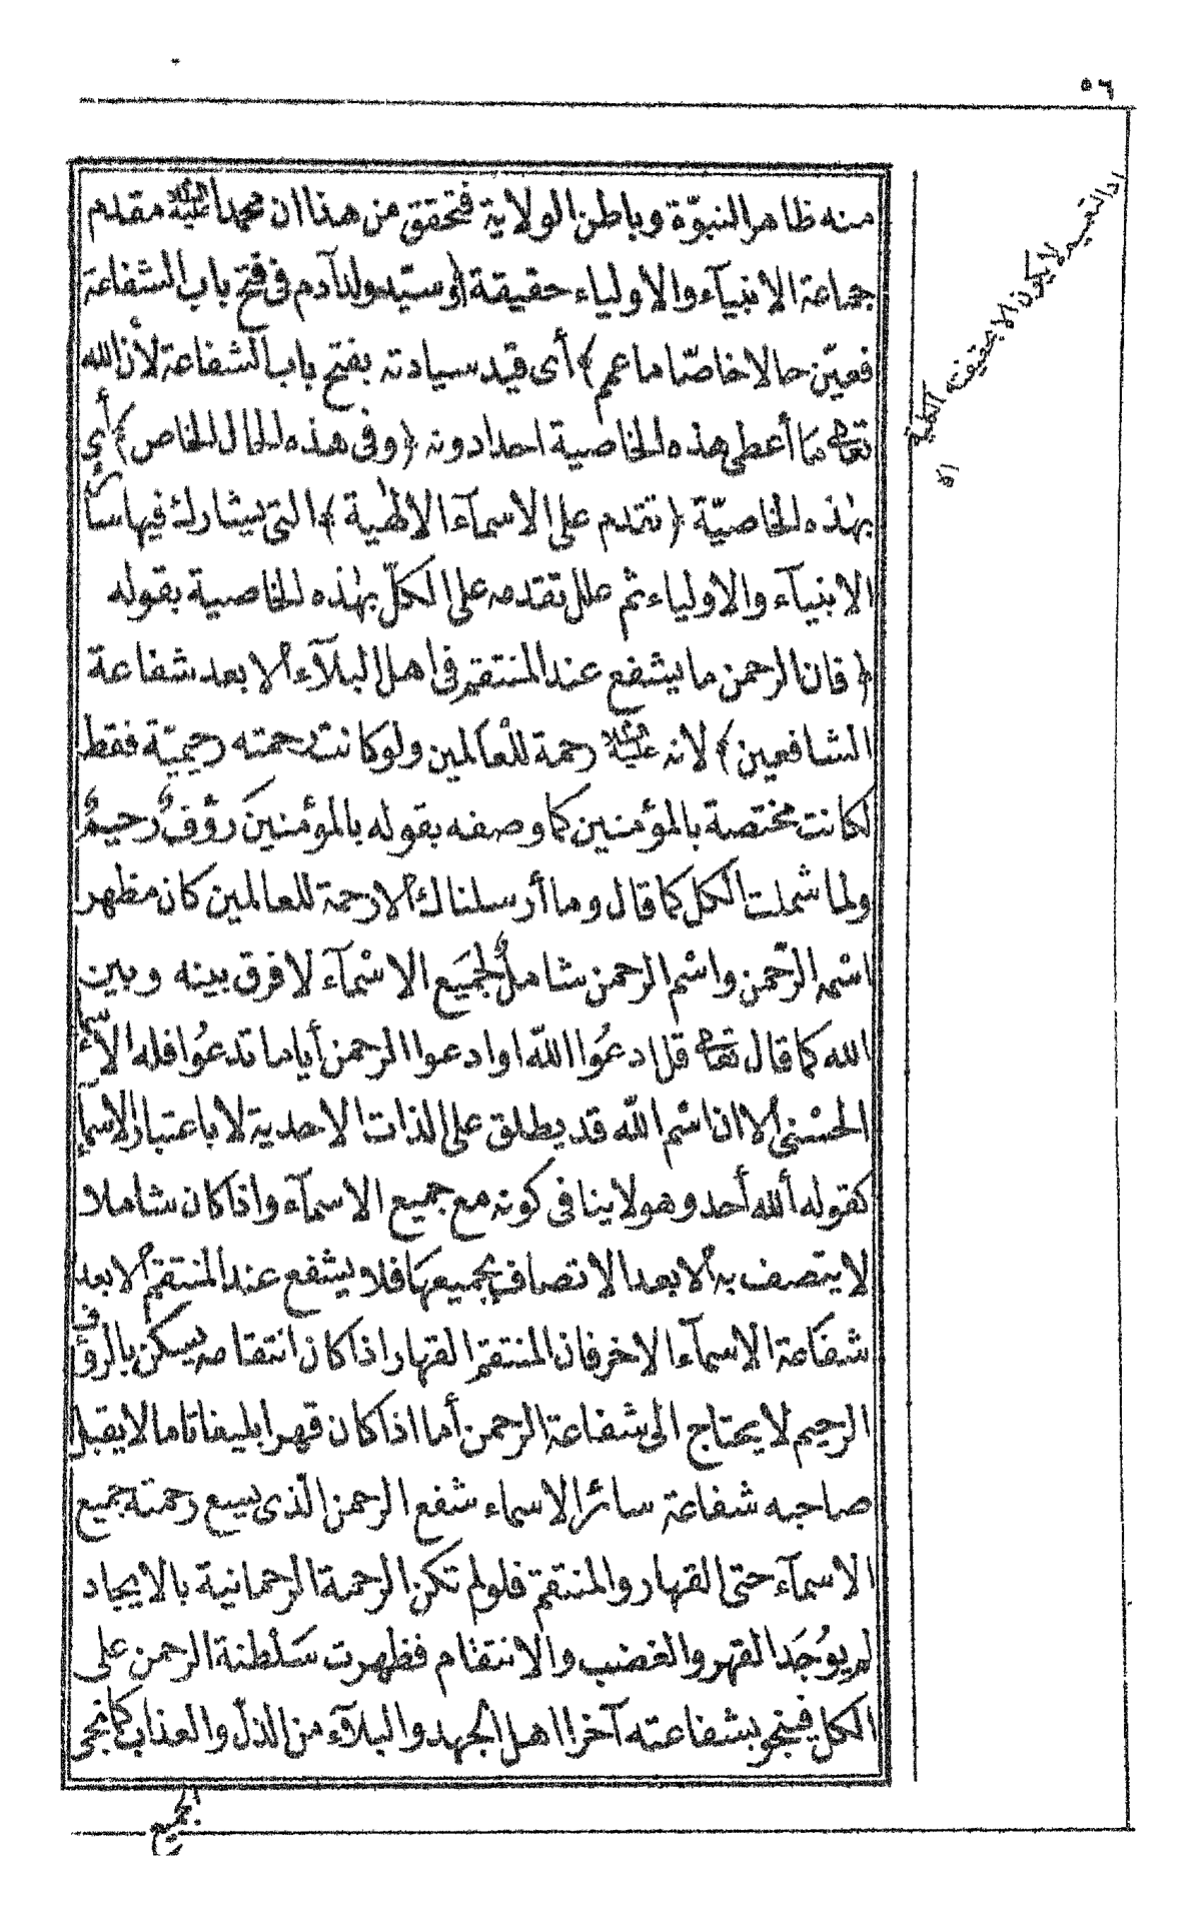 ٥٦
منه ظاهر النبوّة وباطن الولاية فتحقق من هذا ان محمدا عليه السلام مقدم
جماعة الانبيآء والاولياء حقيقة ﴿وسيّد ولد آدم فى فتح باب الشفاعة
فعيّن حالا خاصّا ما عمم﴾ أى قيد سيادته بفتح باب الشفاعة لأن الله
تعالى ما أعطى هذه الخاصية احدا دونه ﴿وفى هذه الحال الخاص﴾ أى
بهٰذه الخاصيّة ﴿تقدم على الاسمآء الالٰهية﴾ التى يشارك فيها سائر
الانبيآء والاولياء ثم علل تقدمه على الكلّ بهٰذه الخاصية بقوله
﴿فان الرحمن ما يشفع عند المنتقم فى اهل البلآء الا بعد شفاعة
الشافعين﴾ لانه عليه السلام رحمة للعالمين ولو كانت رحمته رحيميّة فقط
لكانت مختصة بالمؤمنين كما وصفه بقوله بالمؤمنينَ رؤفٌ رحيمٌ
ولما شملت الكل كما قال وما أرسلناك الا رحمة للعالمين كان مظهر
اسْمه الرّحمن واسْم الرحمن شاملٌ لجميَع الاسْمآء لا فرق بينه وبين
الله كما قال تعالى قل ادعُوا اللّه او ادعوا الرحمن أياما تدعُوا فله الاسمآء
الحسْنى الا ان اسْم اللّه قد يطلق على الذات الاحدية لا باعتبار الاسمآء
كقوله أللّه أحد وهو لا ينافى كونه مع جميع الاسمآء واذا كان شاملا
لا يتصف به الا بعد الاتصاف بجميعهَا فلا يشفع عند المنتقم الا بعد
شفاعَة الاسمآء الاخر فان المنتقم القهار اذا كان انتقامه يسكن بالرؤف
الرحيم لا يحتاج الى شفاعة الرحمن أما اذا كان قهرا بليغا تاما لا يقبل
صاحبه شفاعة سائر الاسماء شفع الرحمن الّذى يسع رحمته جميع
الاسمآء حتى القهار والمنتقم فلو لم تكن الرحمة الرحمانية بالايجاد
لم يوُجَد القهر والغضب والانتقام فظهرت سَلْطنة الرحمن على
الكل فينجو بشفاعته آخرا اهل الجهد والبلآء من الذلّ والعذاب كما نجى
الجميع
لا يكون الا بحقيقت الكلية